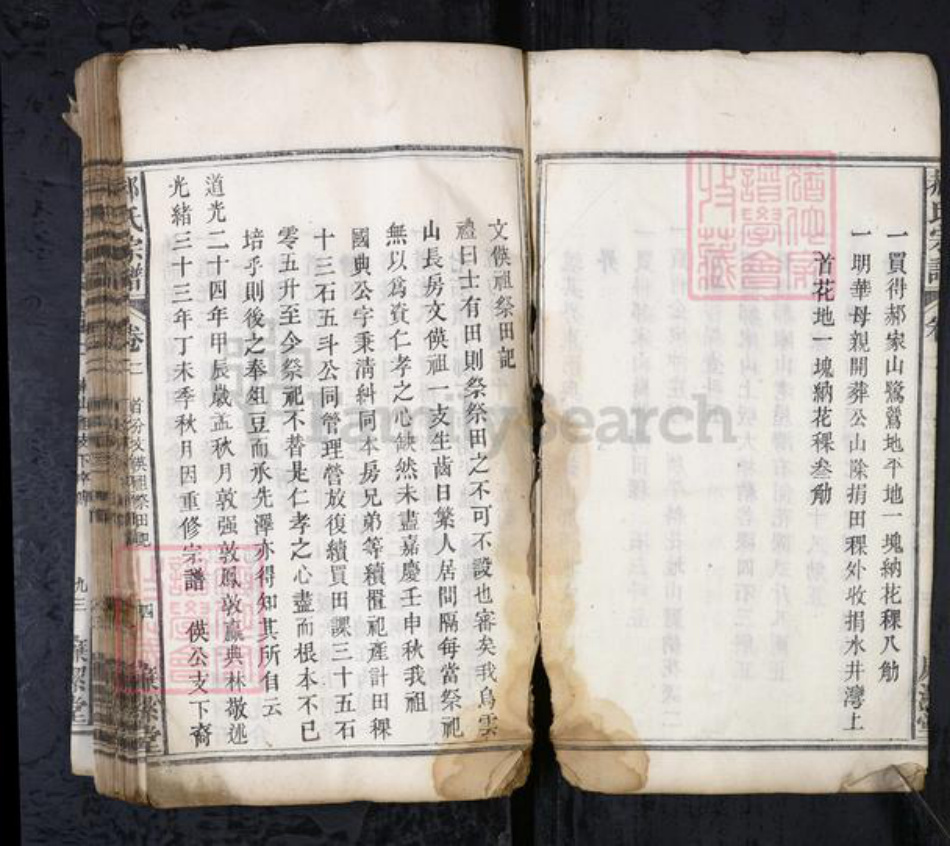 一買得郝家山鷺鷥地平地一塊納花稞八觔
一明華母親開葬公山除捐田稞外收捐水井灣上
首花地一塊納花稞叁觔
文僙祖祭田記
禮曰士有田則祭祭田之不可不設也審矣我烏雲
山長房文僙祖一支生齒日繁人居間隔每當祭祀
無以為資仁孝之心缺然未盡嘉慶壬申秋我祖
國典公字秉清糾同本房兄弟等續置祀產計田稞
十三石五斗公同管理營放復續買田課三十五石
零五升至今祭祀不替是仁孝之心盡而根本不已
培乎則後之奉俎豆而承先澤亦得知其所自云
道光二十四年甲辰歲孟秋月敦强敦鳳敦贏典林敬述
光緒三十三年丁未季秋月因重修宗譜 僙公支下裔
氏宗譜 卷
四
FamilySearch